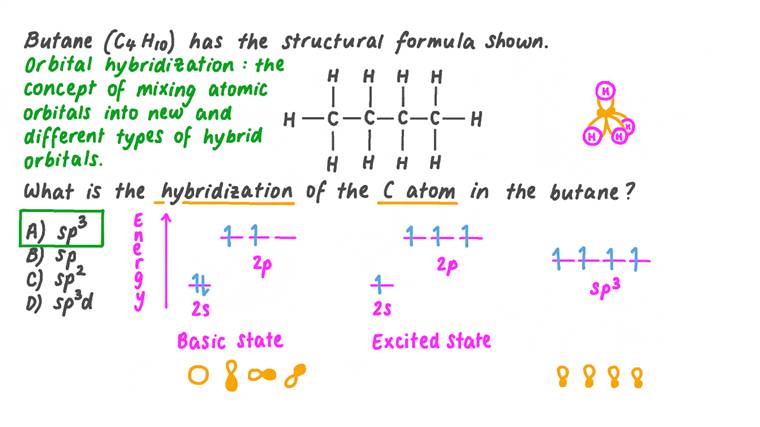 Butane (C₄H₁₀) has the structural formula shown.
Orbital hybridization : the
concept of mixing atomic
orbitals into new and
different types of hybrid
orbitals.
H H H H
H – C – C – C – C – H
H H H H
H
H H H
What is the hybridization of the C atom in the butane?
A) sp³
B) sp
C) sp²
D) sp³d
Energy
2p
2s
Basic state
2p
2s
Excited state
sp³